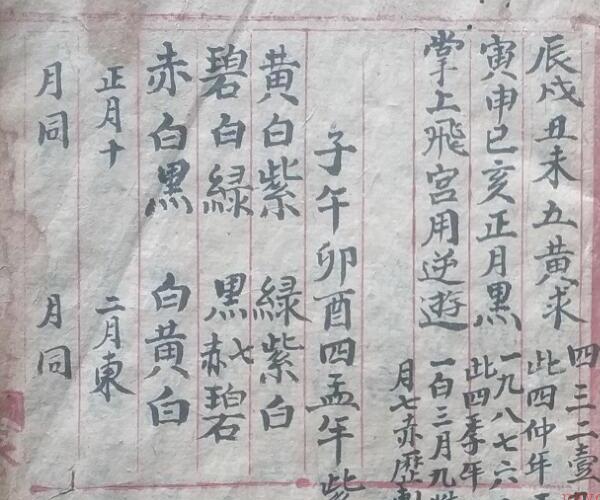 辰戌丑未五黄求
四三二壹
此四仲年
寅申巳亥正月黑
一九八七六
此四季年
掌上飛宮用逆遊
一百三月九
月七赤歷
子午卯酉四孟年紫
黄白紫 綠紫白
碧白綠 黑七赤碧
赤白黑 白黄白
正月十 二月東
月同 月同